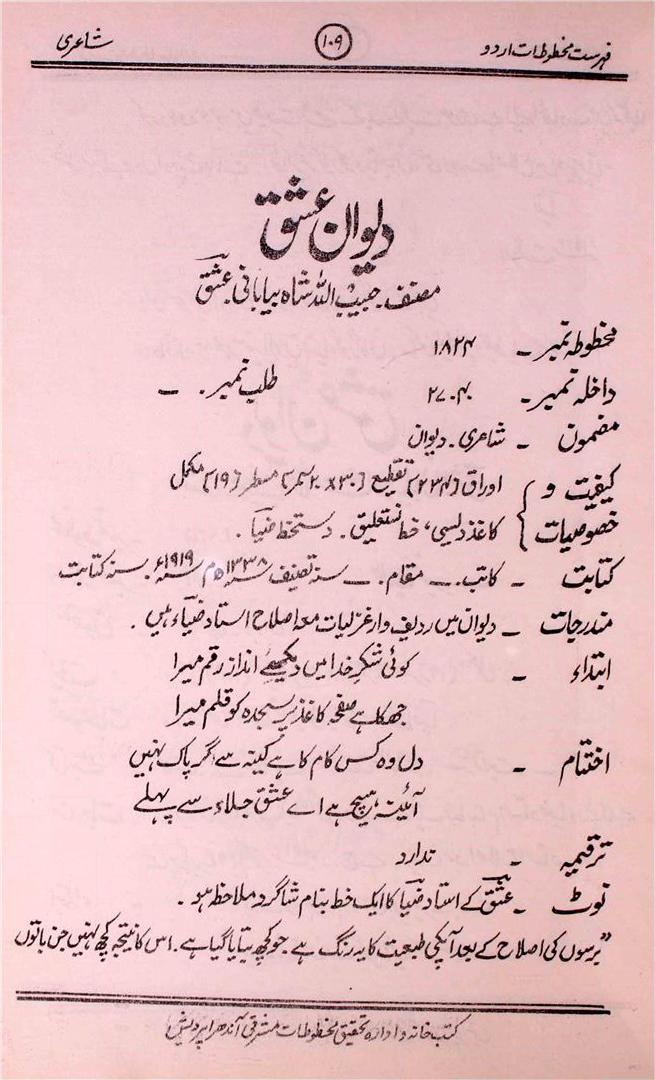 فہرست مخطوطات اردو ۱۰۹ شاعری
دیوان عشق
مصنف۔ حبیب اللہ شاہ بیابانی عشق
مخطوطہ نمبر ۔ ۱۸۲۴
داخلہ نمبر ۔ ۲۷۰۴ طلب نمبر ۔ ـــ
مضمون ۔ شاعری ۔ دیوان
کیفیت و اوراق [۲۳۴] تقطیع [۳۰×۲۰ سمر] مسطر [۱۹] مکمل
خصوصیات کاغذ دلیسی، خط نستعلیق ۔ دستخط ضیا ۔
کتابت ۔ کاتب ۔ ــ مقام ۔ ــ سنہ تصنیف ۱۳۳۸ھ م سنہ ۱۹۱۹ء ۔ سنہ کتابت
مندرجات ۔ دیوان میں ردیف وار غزلیات معہ اصلاح استاد ضیاء ہیں ۔
ابتداء ۔ کوئی شکرِ خدا میں دیکھئے انداز رقم میرا
جھکا ہے صفحہ کاغذ پر سجدہ کو قلم میرا
اختتام ۔ دل وہ کس کام کا ہے کینہ سے گر پاک نہیں
آئینہ ہیچ ہے اے عشق جلاء سے پہلے
ترقیمہ ۔ ندارد
نوٹ ۔ عشق کے استاد ضیا کا ایک خط بنام شاگرد ملاحظہ ہو ۔
”برسوں کی اصلاح کے بعد آپکی طبیعت کا یہ رنگ ہے ۔ جو کچھ بتایا گیا ہے ۔ اس کا نتیجہ کچھ نہیں جن باتوں
کتب خانہ و ادارہ تحقیق مخطوطات مشرقی آندھرا پردیش